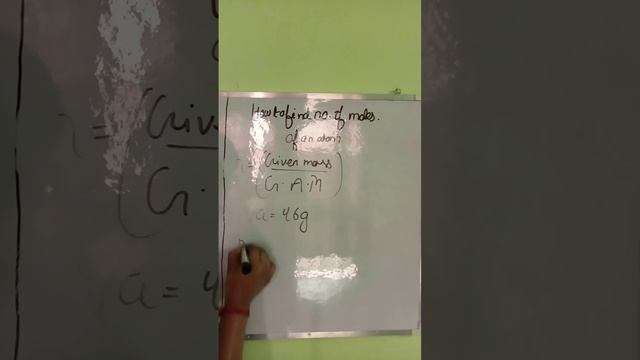 How to find no. of moles.
of an atom
n = (Given mass
G.A.M)
a = 46g
n